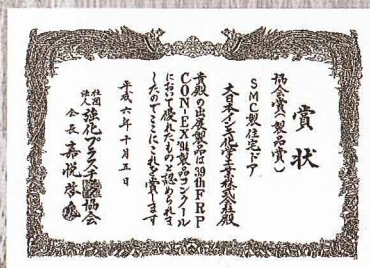 賞状
協会賞(製品賞)
SMC製住宅ドア
大日本インキ化学工業株式会社殿
貴殿の出展製品は39thFRP
CON-EX'94製品コンクール
において優れたものと認められま
したのでここにこれを賞します
平成六年十月五日
社団法人 強化プラスチック協会
会長 嘉悦